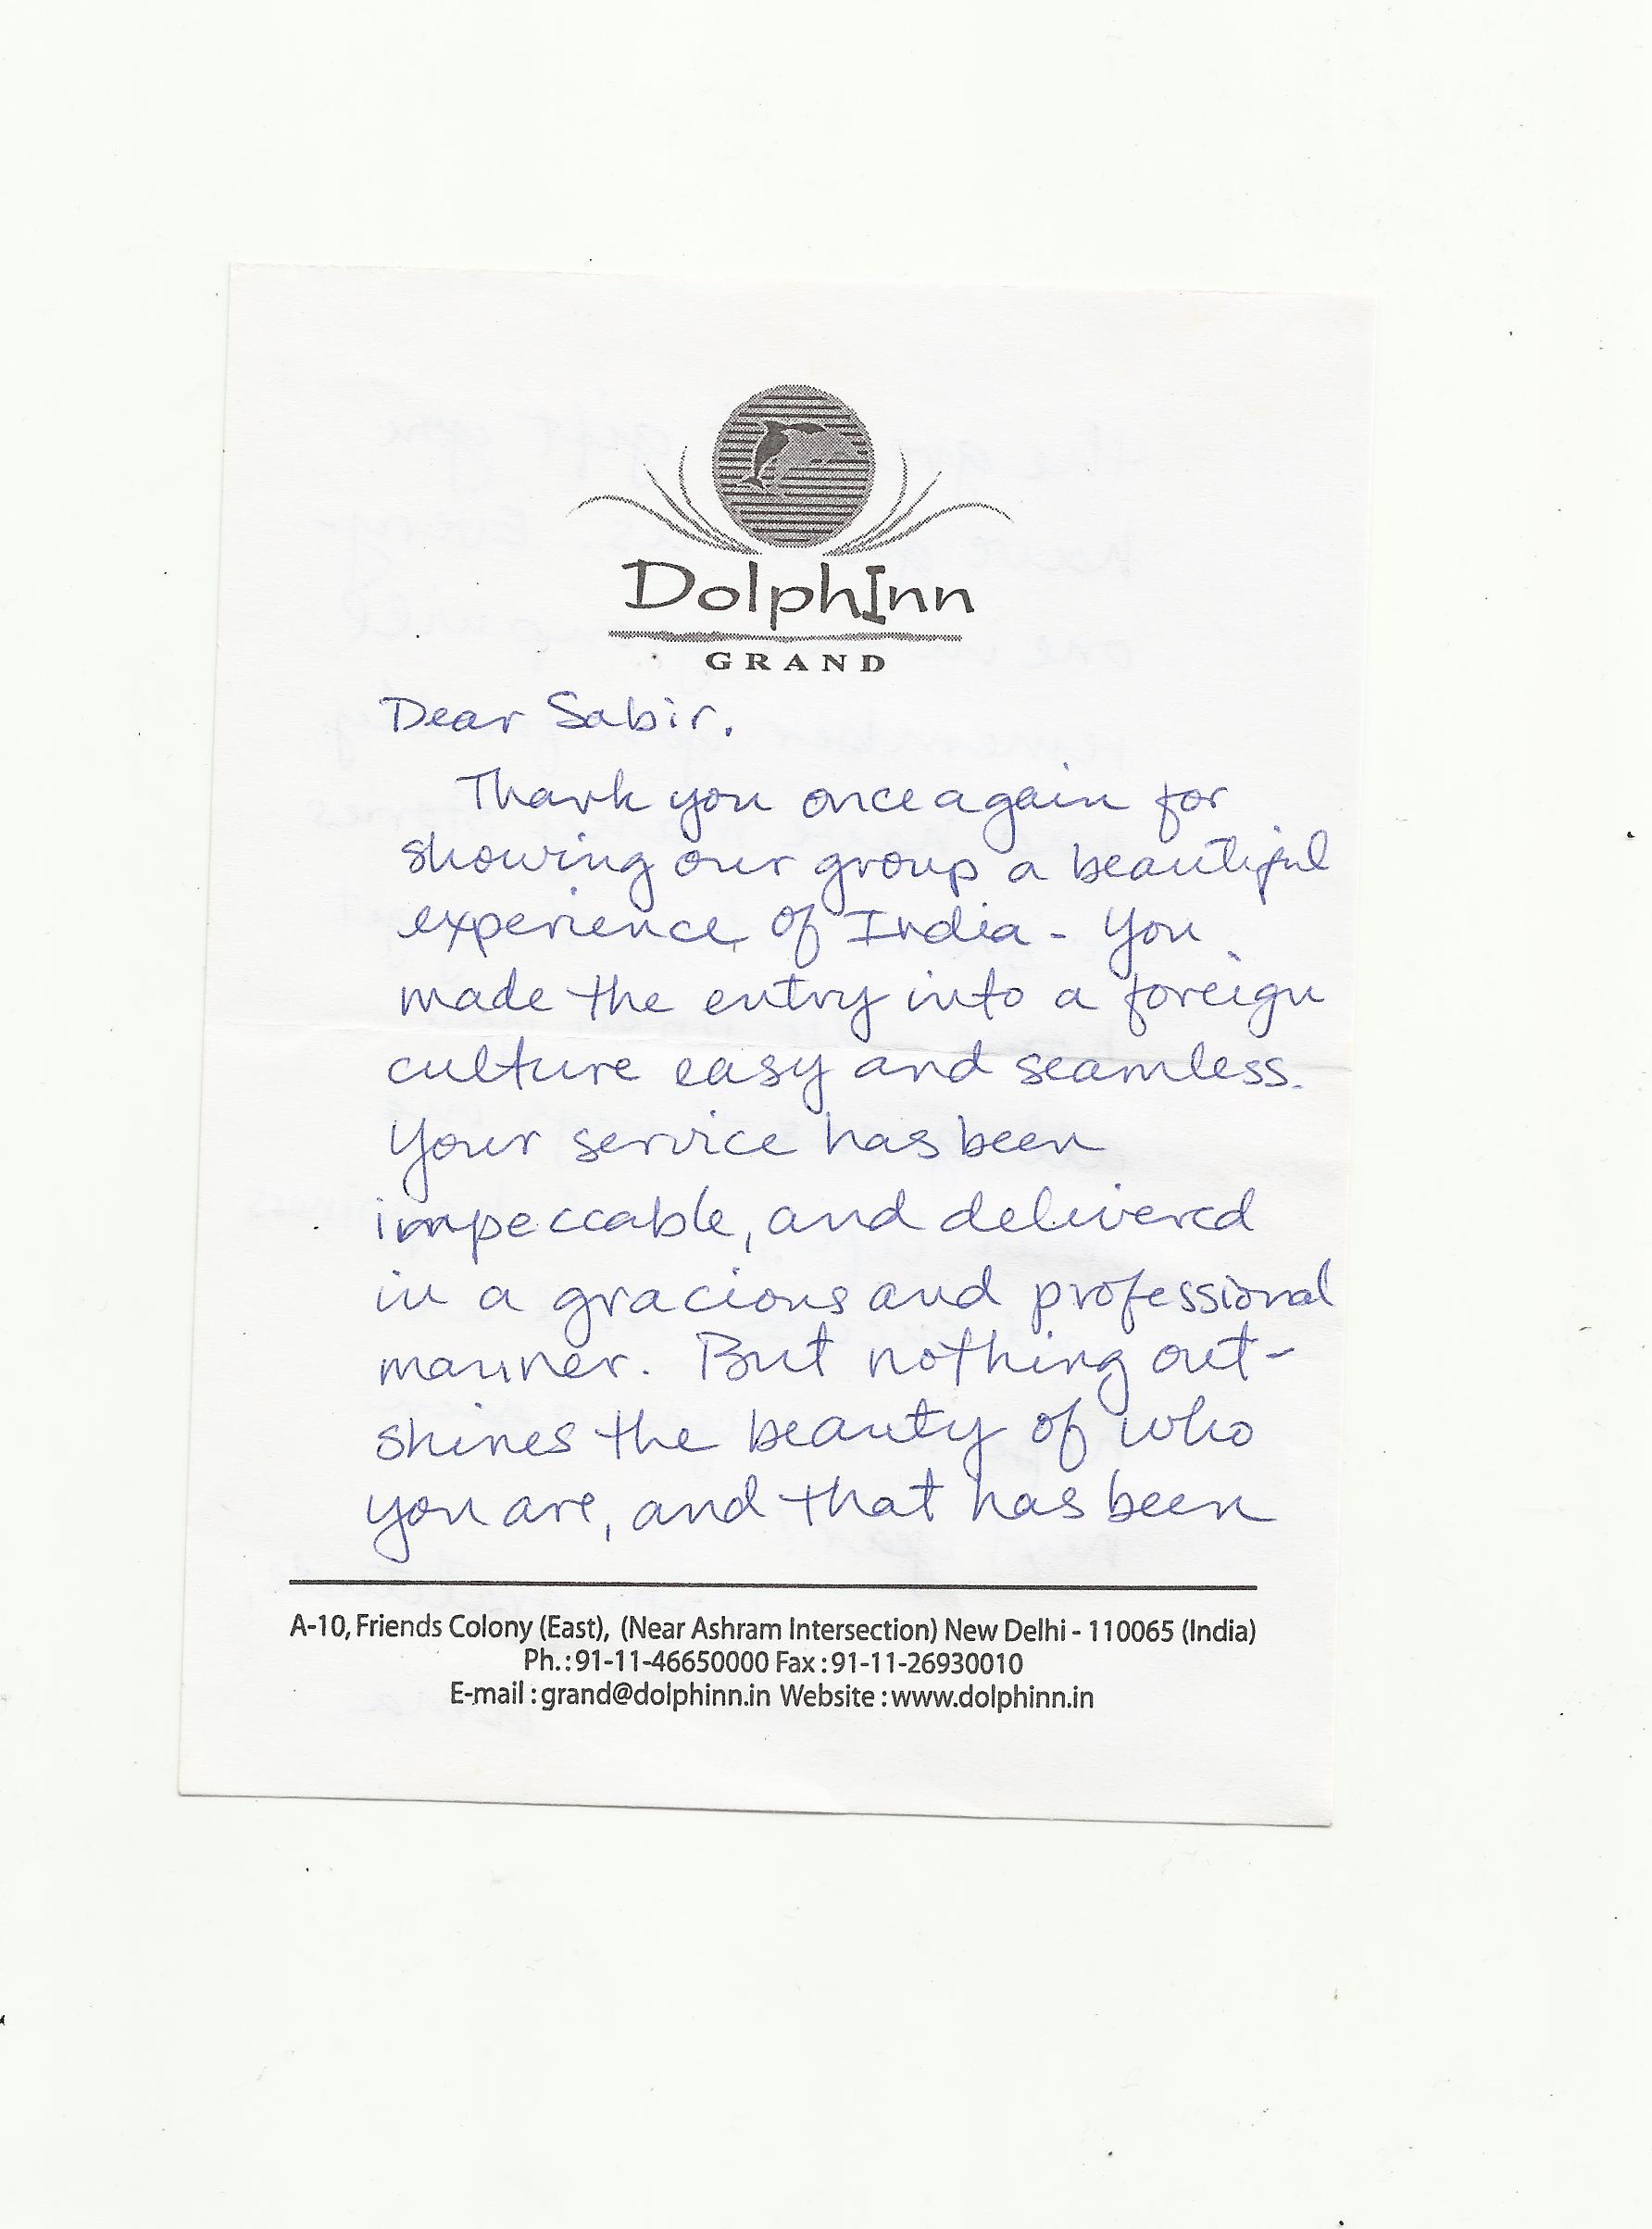 DolphInn
GRAND
Dear Sabir,
Thank you once again for
showing our group a beautiful
experience of India - You
made the entry into a foreign
culture easy and seamless.
Your service has been
impeccable, and delivered
in a gracious and professional
manner. But nothing out-
shines the beauty of who
you are, and that has been
A-10, Friends Colony (East), (Near Ashram Intersection) New Delhi - 110065 (India)
Ph.: 91-11-46650000 Fax : 91-11-26930010
E-mail : grand@dolphinn.in Website : www.dolphinn.in